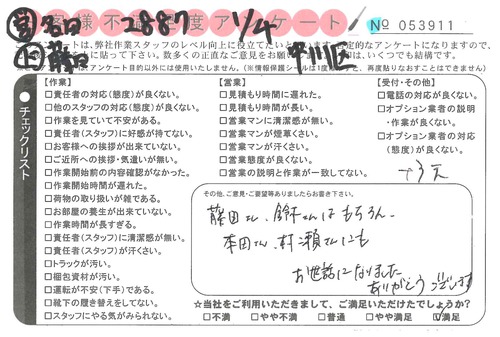 客様 不満足度 アンケート № 053911
2887 1/4
ートは、弊社作業スタッフのレベル向上に役立てたい
定的なアンケートになりますので、
下さい。数多くの正直なご意見をお願い
は、いくつでも結構です。
アンケート目的以外には使用いたしません。
チェックリスト
【作業】
□責任者の対応(態度)が良くない。
□他のスタッフの対応(態度)が良くない。
□作業を見ていて不安がある。
□責任者(スタッフ)に好感が持てない。
□お客様への挨拶が出来ていない。
□ご近所への挨拶・気遣いが無い。
□作業開始前の内容確認がなかった。
□作業開始時間が遅れた。
□荷物の取り扱いが雑である。
□お部屋の養生が出来ていない。
□作業時間が長すぎる。
□責任者(スタッフ)に清潔感が無い。
□責任者(スタッフ)が汗くさい。
□トラックが汚い。
□梱包資材が汚い。
□運転が不安(下手)である。
□靴下の履き替えをしてない。
□スタッフにやる気がみられない。
【営業】
□見積もり時間に遅れた。
□見積もり時間が長い。
□営業マンに清潔感が無い。
□営業マンが煙草くさい。
□営業マンが汗くさい。
□営業態度が良くない。
□営業の説明と作業が一致してない。
【受付・その他】
□電話の対応が良くない。
□オプション業者の説明
・作業が良くない。
□オプション業者の対応
(態度)が良くない。
その他、ご意見・ご要望等ありましたらお書き下さい。
藤田さん、鈴木さんはもちろん、
本田さん、村瀬さんにも
お世話になりました
ありがとうございます
☆当社をご利用いただきまして、ご満足いただけでしょうか?
□不満 □やや不満 □普通 □やや満足 ☑満足